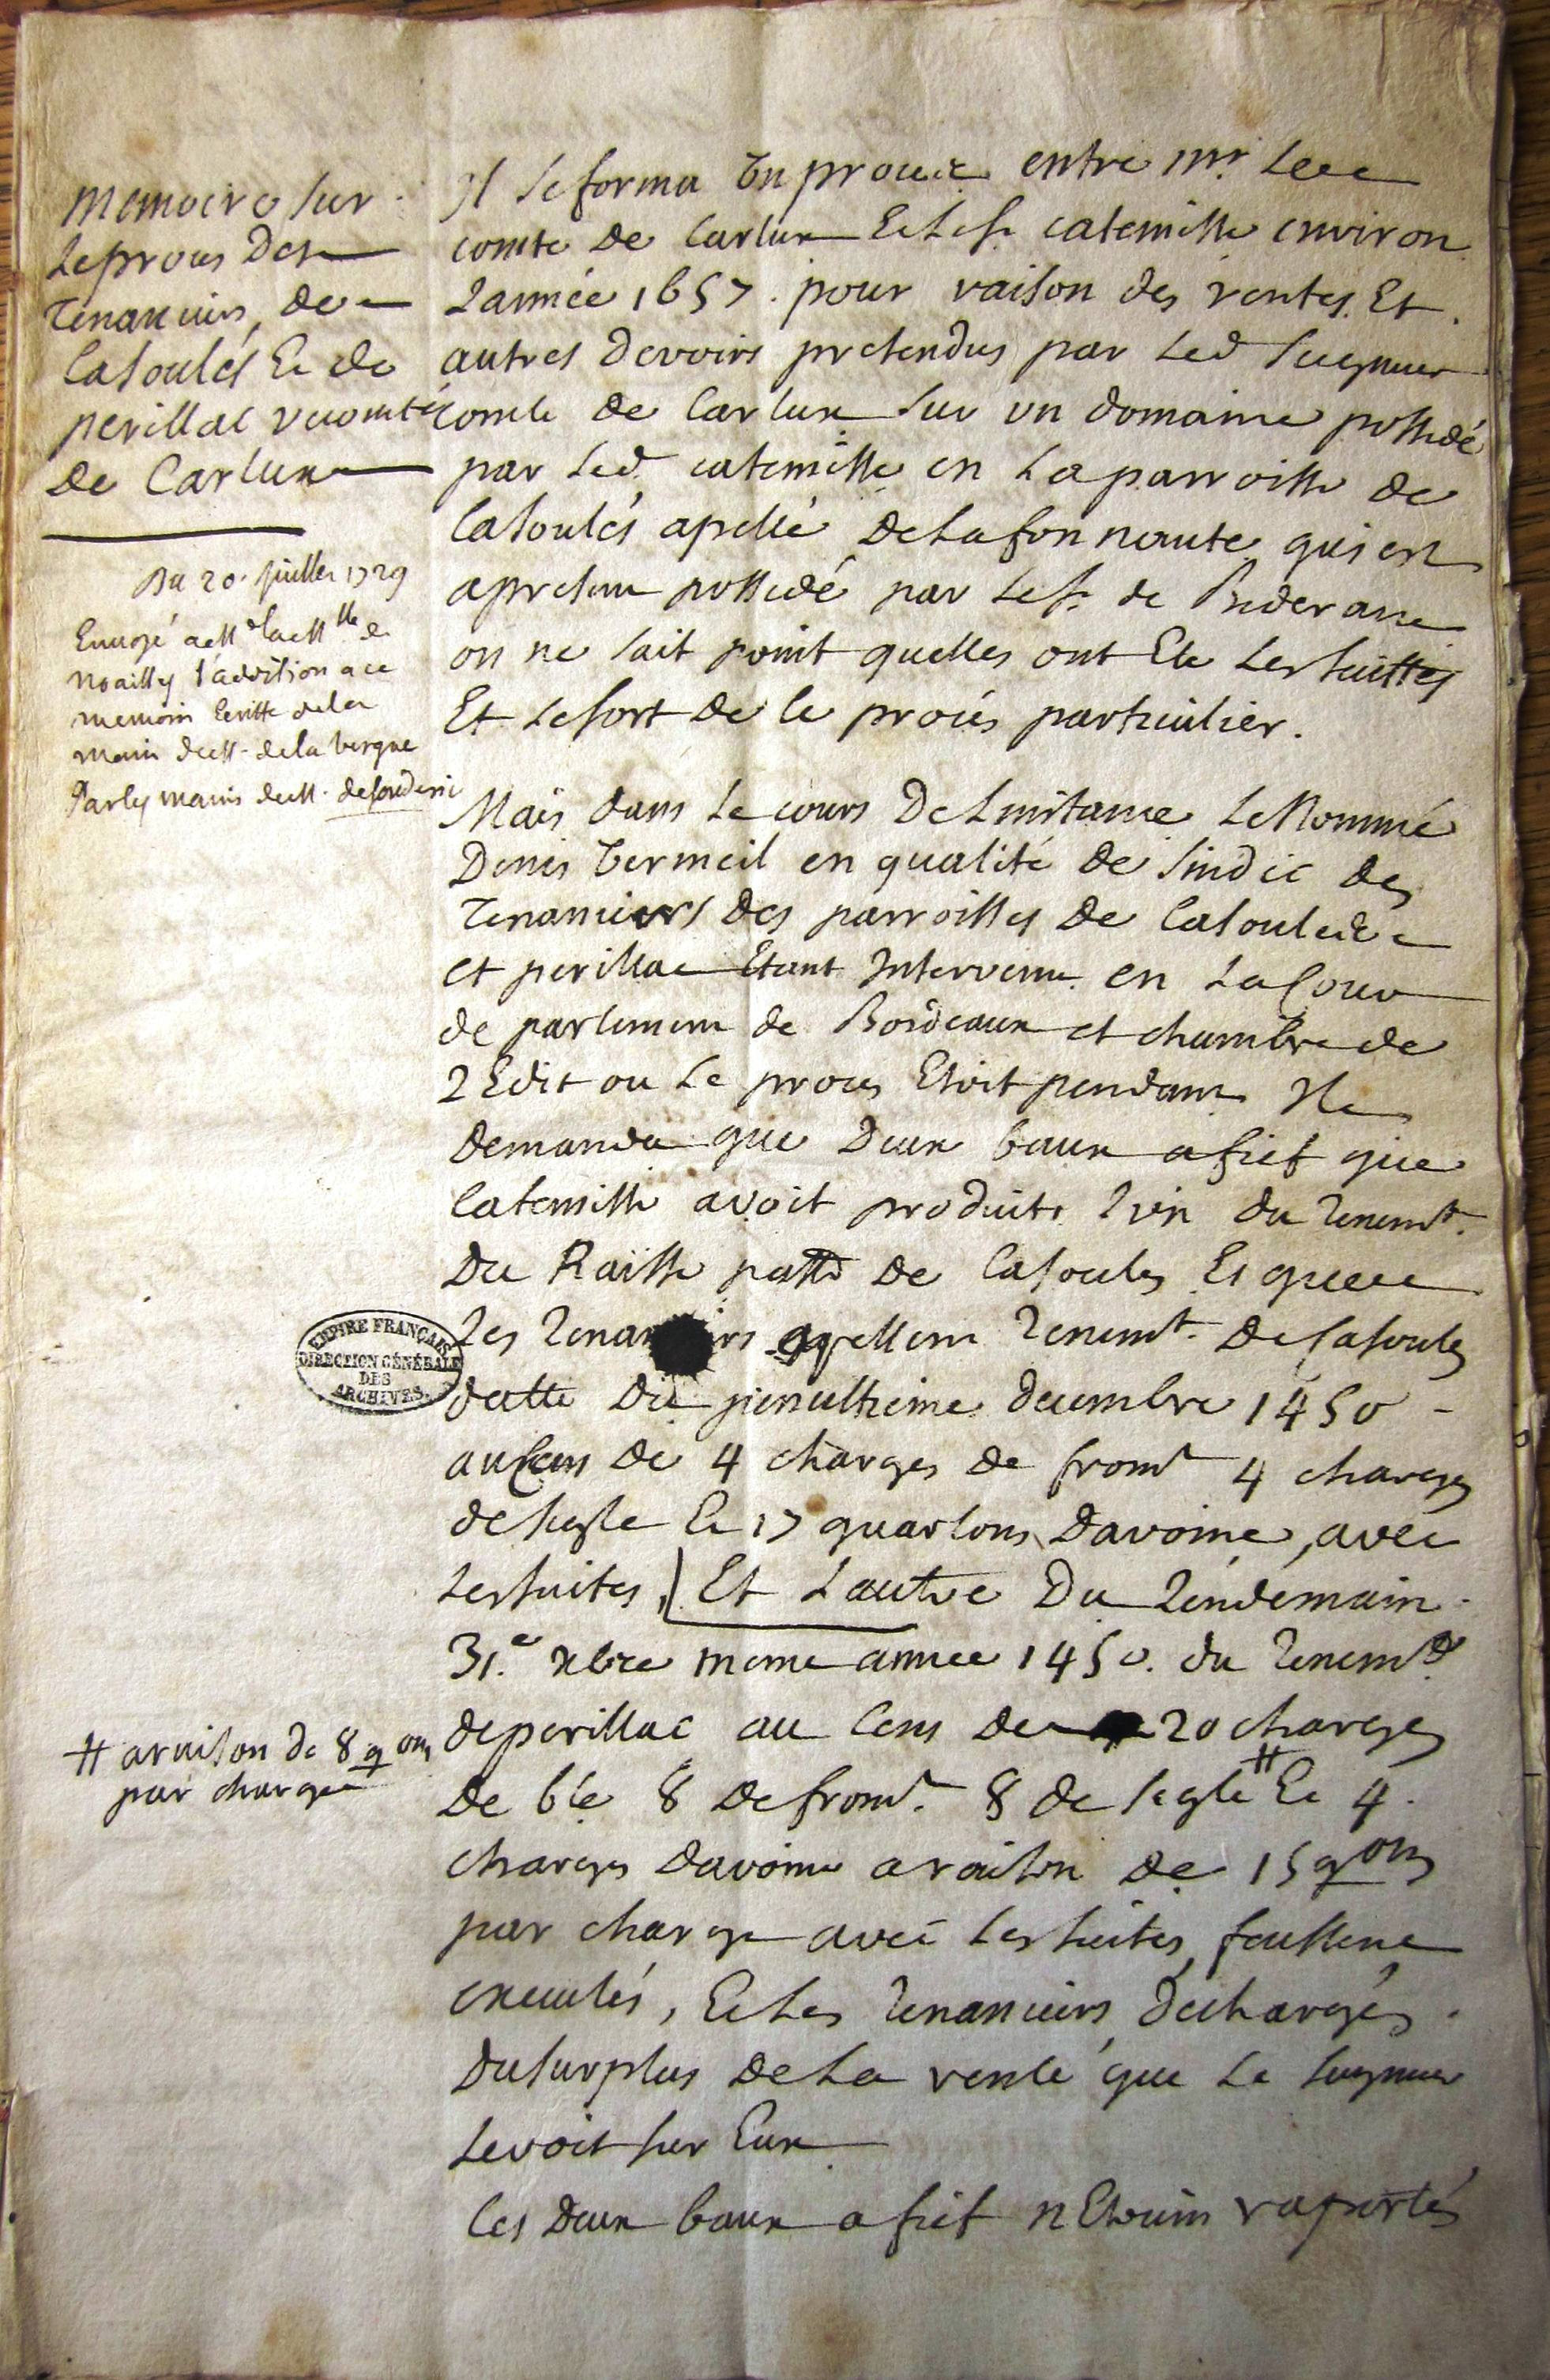 Memoire sur
le proces des
Tenanciers de
Casoulés Et de
perillac vicomté
de Carlux
Du 20. juillet 1729
Envoyé a Md la Mlle de
noailles l'addition a ce
memoire Ecritte de la
main de M. de la vergne
Par les mains de M.
Il se forma Un procéz entre Mr. Le
comte de Carlux Et le sr. catemille environ
Lannée 1657. pour raison des rentes Et
autres devoirs pretendus par led seigneur
comte de Carlux sur un domaine possedé
par led catemille en La parroisse de
Casoulés apellé de La fon haute qui est
apresent possedé par le sr. de
on ne sait point quelles ont Eté Les suittes
Et le sort de ce procés particulier.
Mais dans Le cours De Linstance Le Nommé
Denis Vermeil en qualité de sindic des
Tenanciers des parroisses de Casouléz
et perillac Etant Intervenu en La Cour
de parlement de Bordeaux et chambre de
LEdit ou Le proces Etoit pendant Il
demanda que Deux baux a fief que
Catemille avoit produits Lun du Tenemt.
Du Raisse passé de Casoules Et que
Les Tenanciers apellent Tenemt. De Casoules
datté du penultieme decembre 1450 -
au Cens de 4 charges de fromt 4 charges
de segle Et 17 quartons Davoine, avec
Les suites, Et Lautre Du Lendemain
31.e xbre meme année 1450. du Tenemt.
de perillac au Cens de 20 charges
De blé 8 de fromt. 8 de segle # Et 4.
charges Davoine a raison de 15 qons
par charge avec Les suites, fussent
executés, Et Les Tenanciers déchargés
du surplus de La rente que Le seigneur
Levoit sur Eux
# a raison de 8 qons
par charge
EMPIRE FRANÇAIS
DIRECTION GÉNÉRALE
DES
ARCHIVES.
Ces Deux baux a fief nEtoient raportés